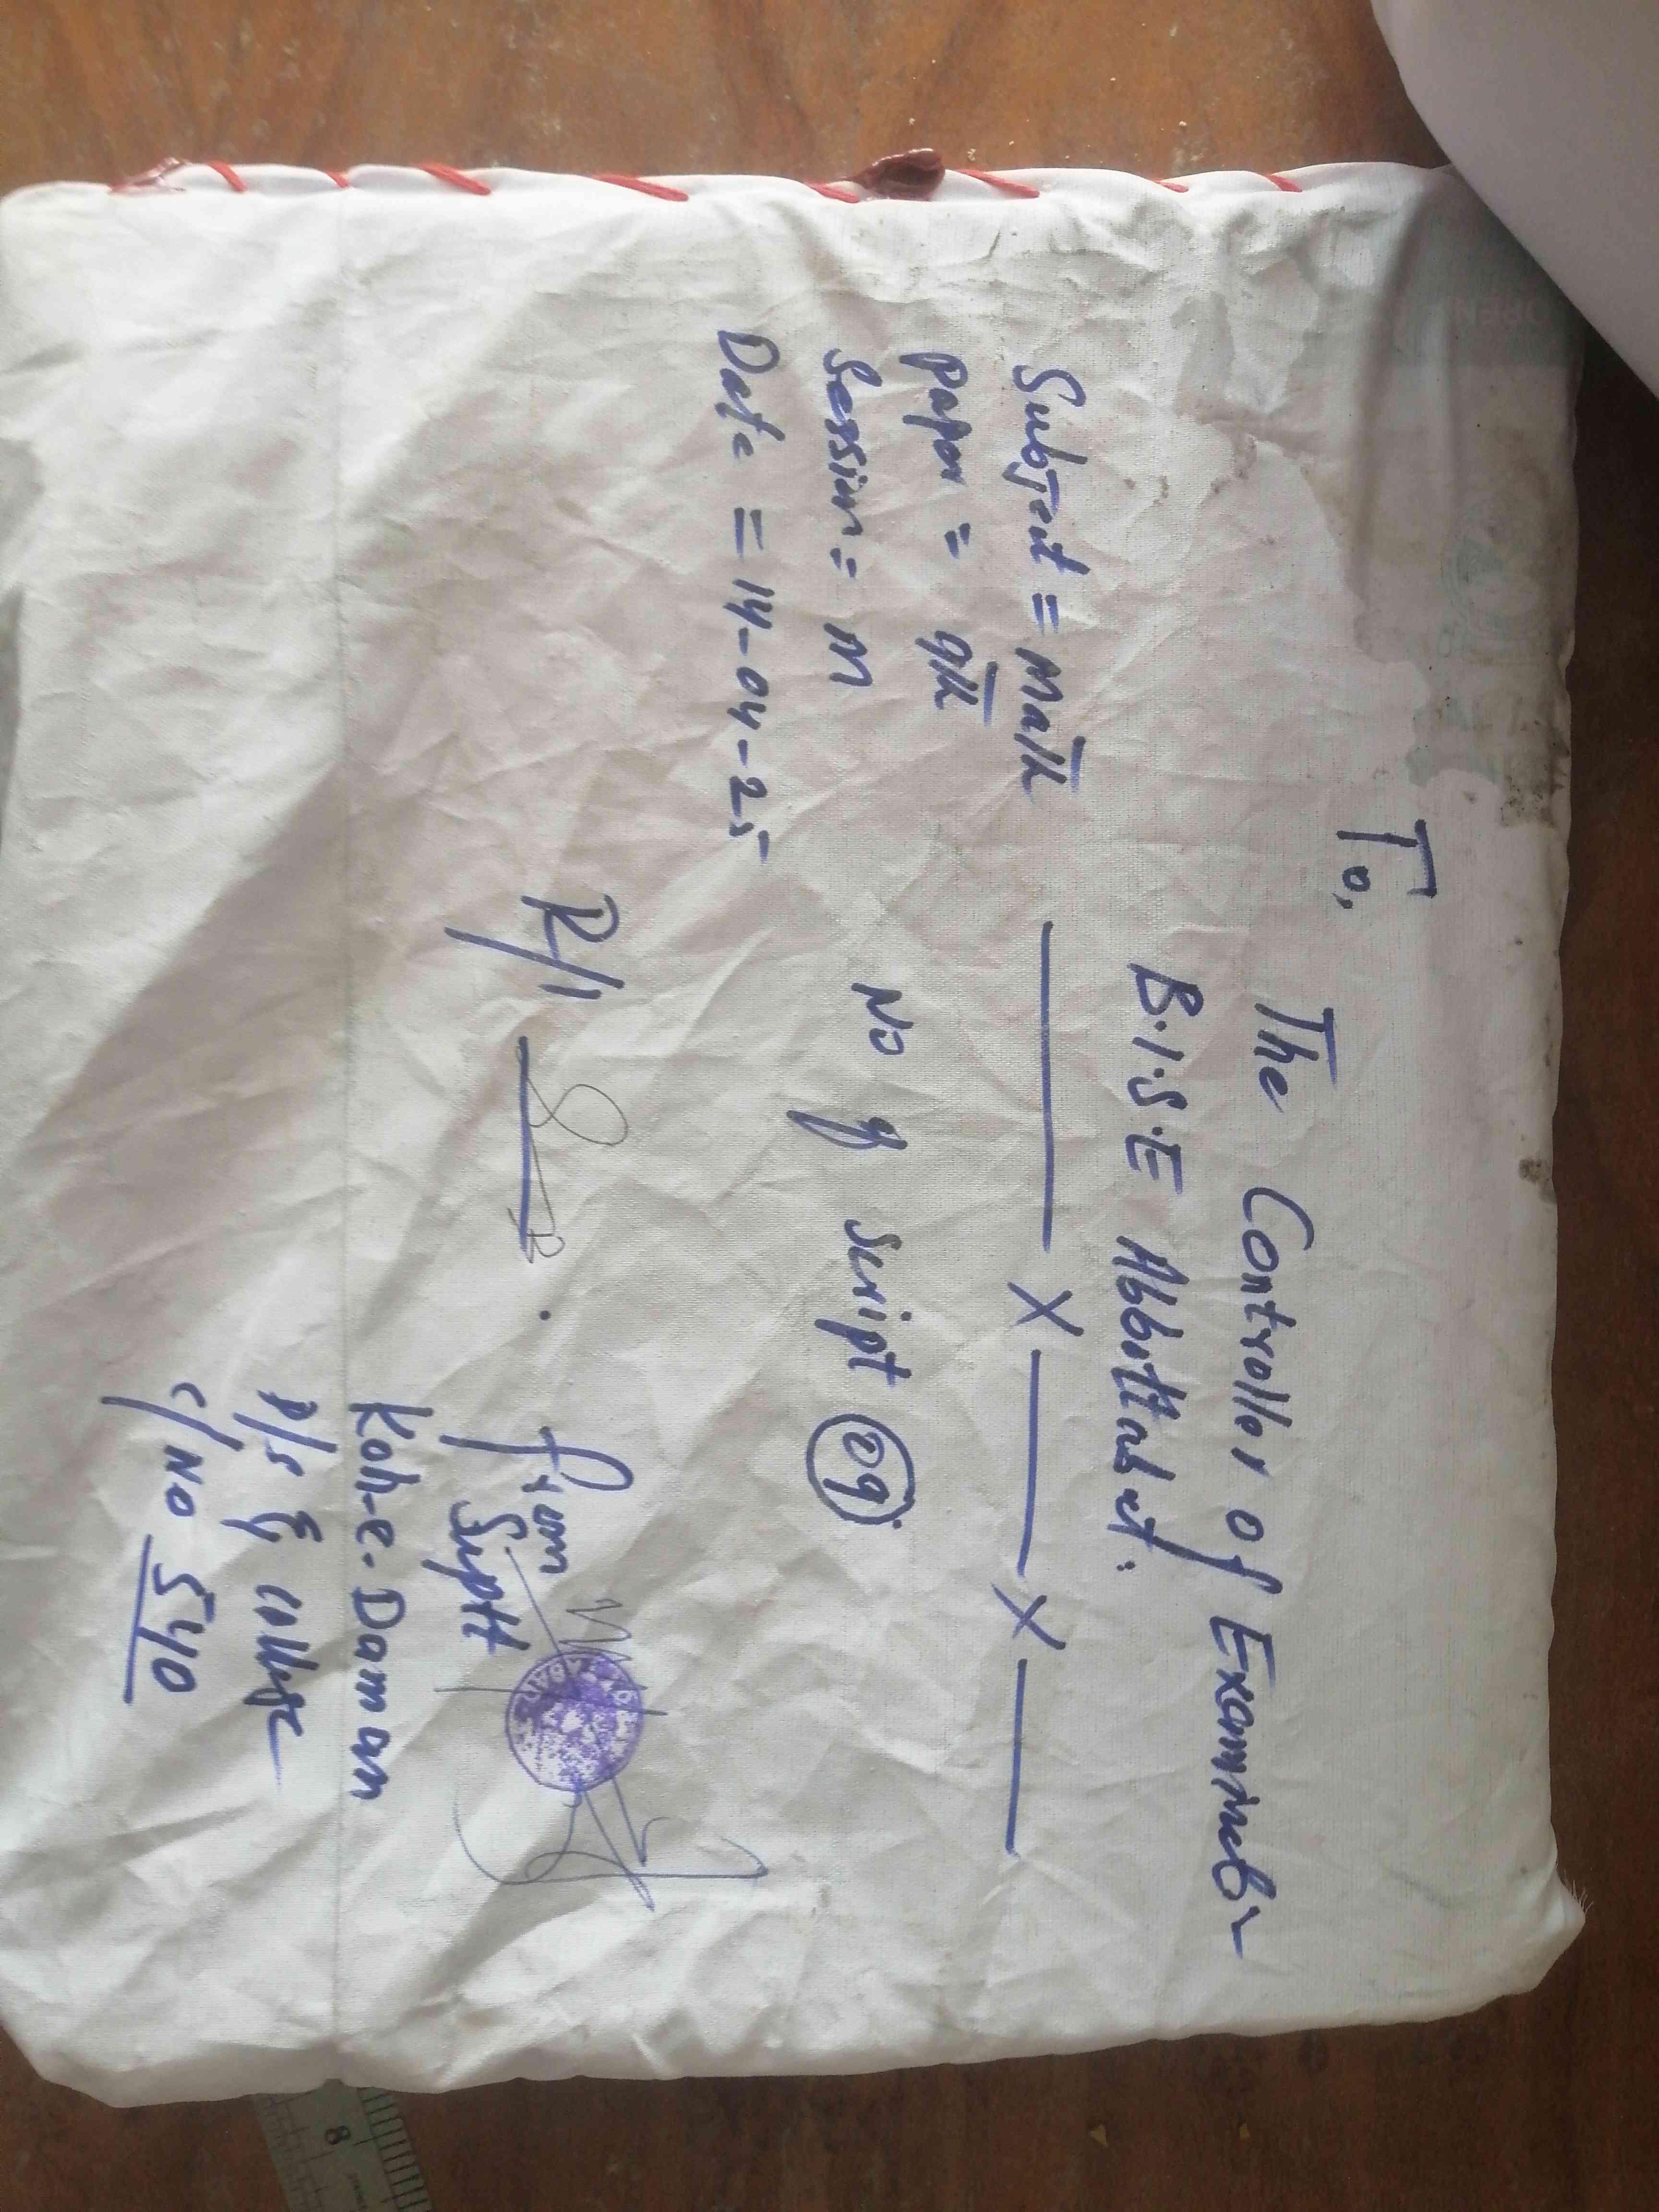 To,
The Controller of Examinebr
B.I.S.E Abbottabad.
Subject = Math
Paper = 9th
Session = M
Date = 14-04-25
No of script 09
R/1
from
Suptt
Koh-e-Daman
P/S & College
C/NO 5410
8